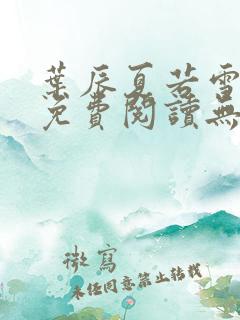 葉辰夏若雪
免費閱讀無
微寫
未经同意禁止转载